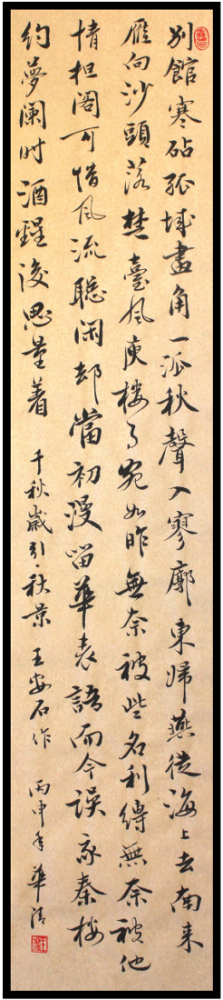 别館寒砧孤城畫角一派秋聲入寥廓東歸燕從海上去南来
雁向沙頭落楚臺風庾樓月宛如昨無奈被些名利缚無奈被他
情担阁可惜風流總闲却當初漫留華表語而今误我秦樓
約夢阑时酒醒後思量着 千秋歲引·秋景 王安石作 丙申年 華清